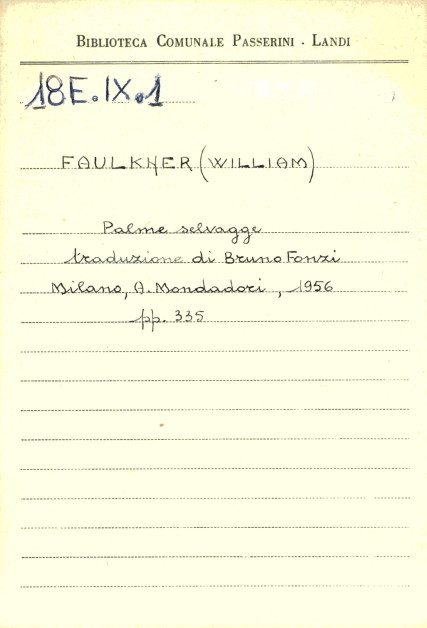 BIBLIOTECA COMUNALE PASSERINI - LANDI
18E.IX.1
FAULKNER (WILLIAM)
Palme selvagge
traduzione di Bruno Fonzi
Milano, A. Mondadori, 1956
pp. 335